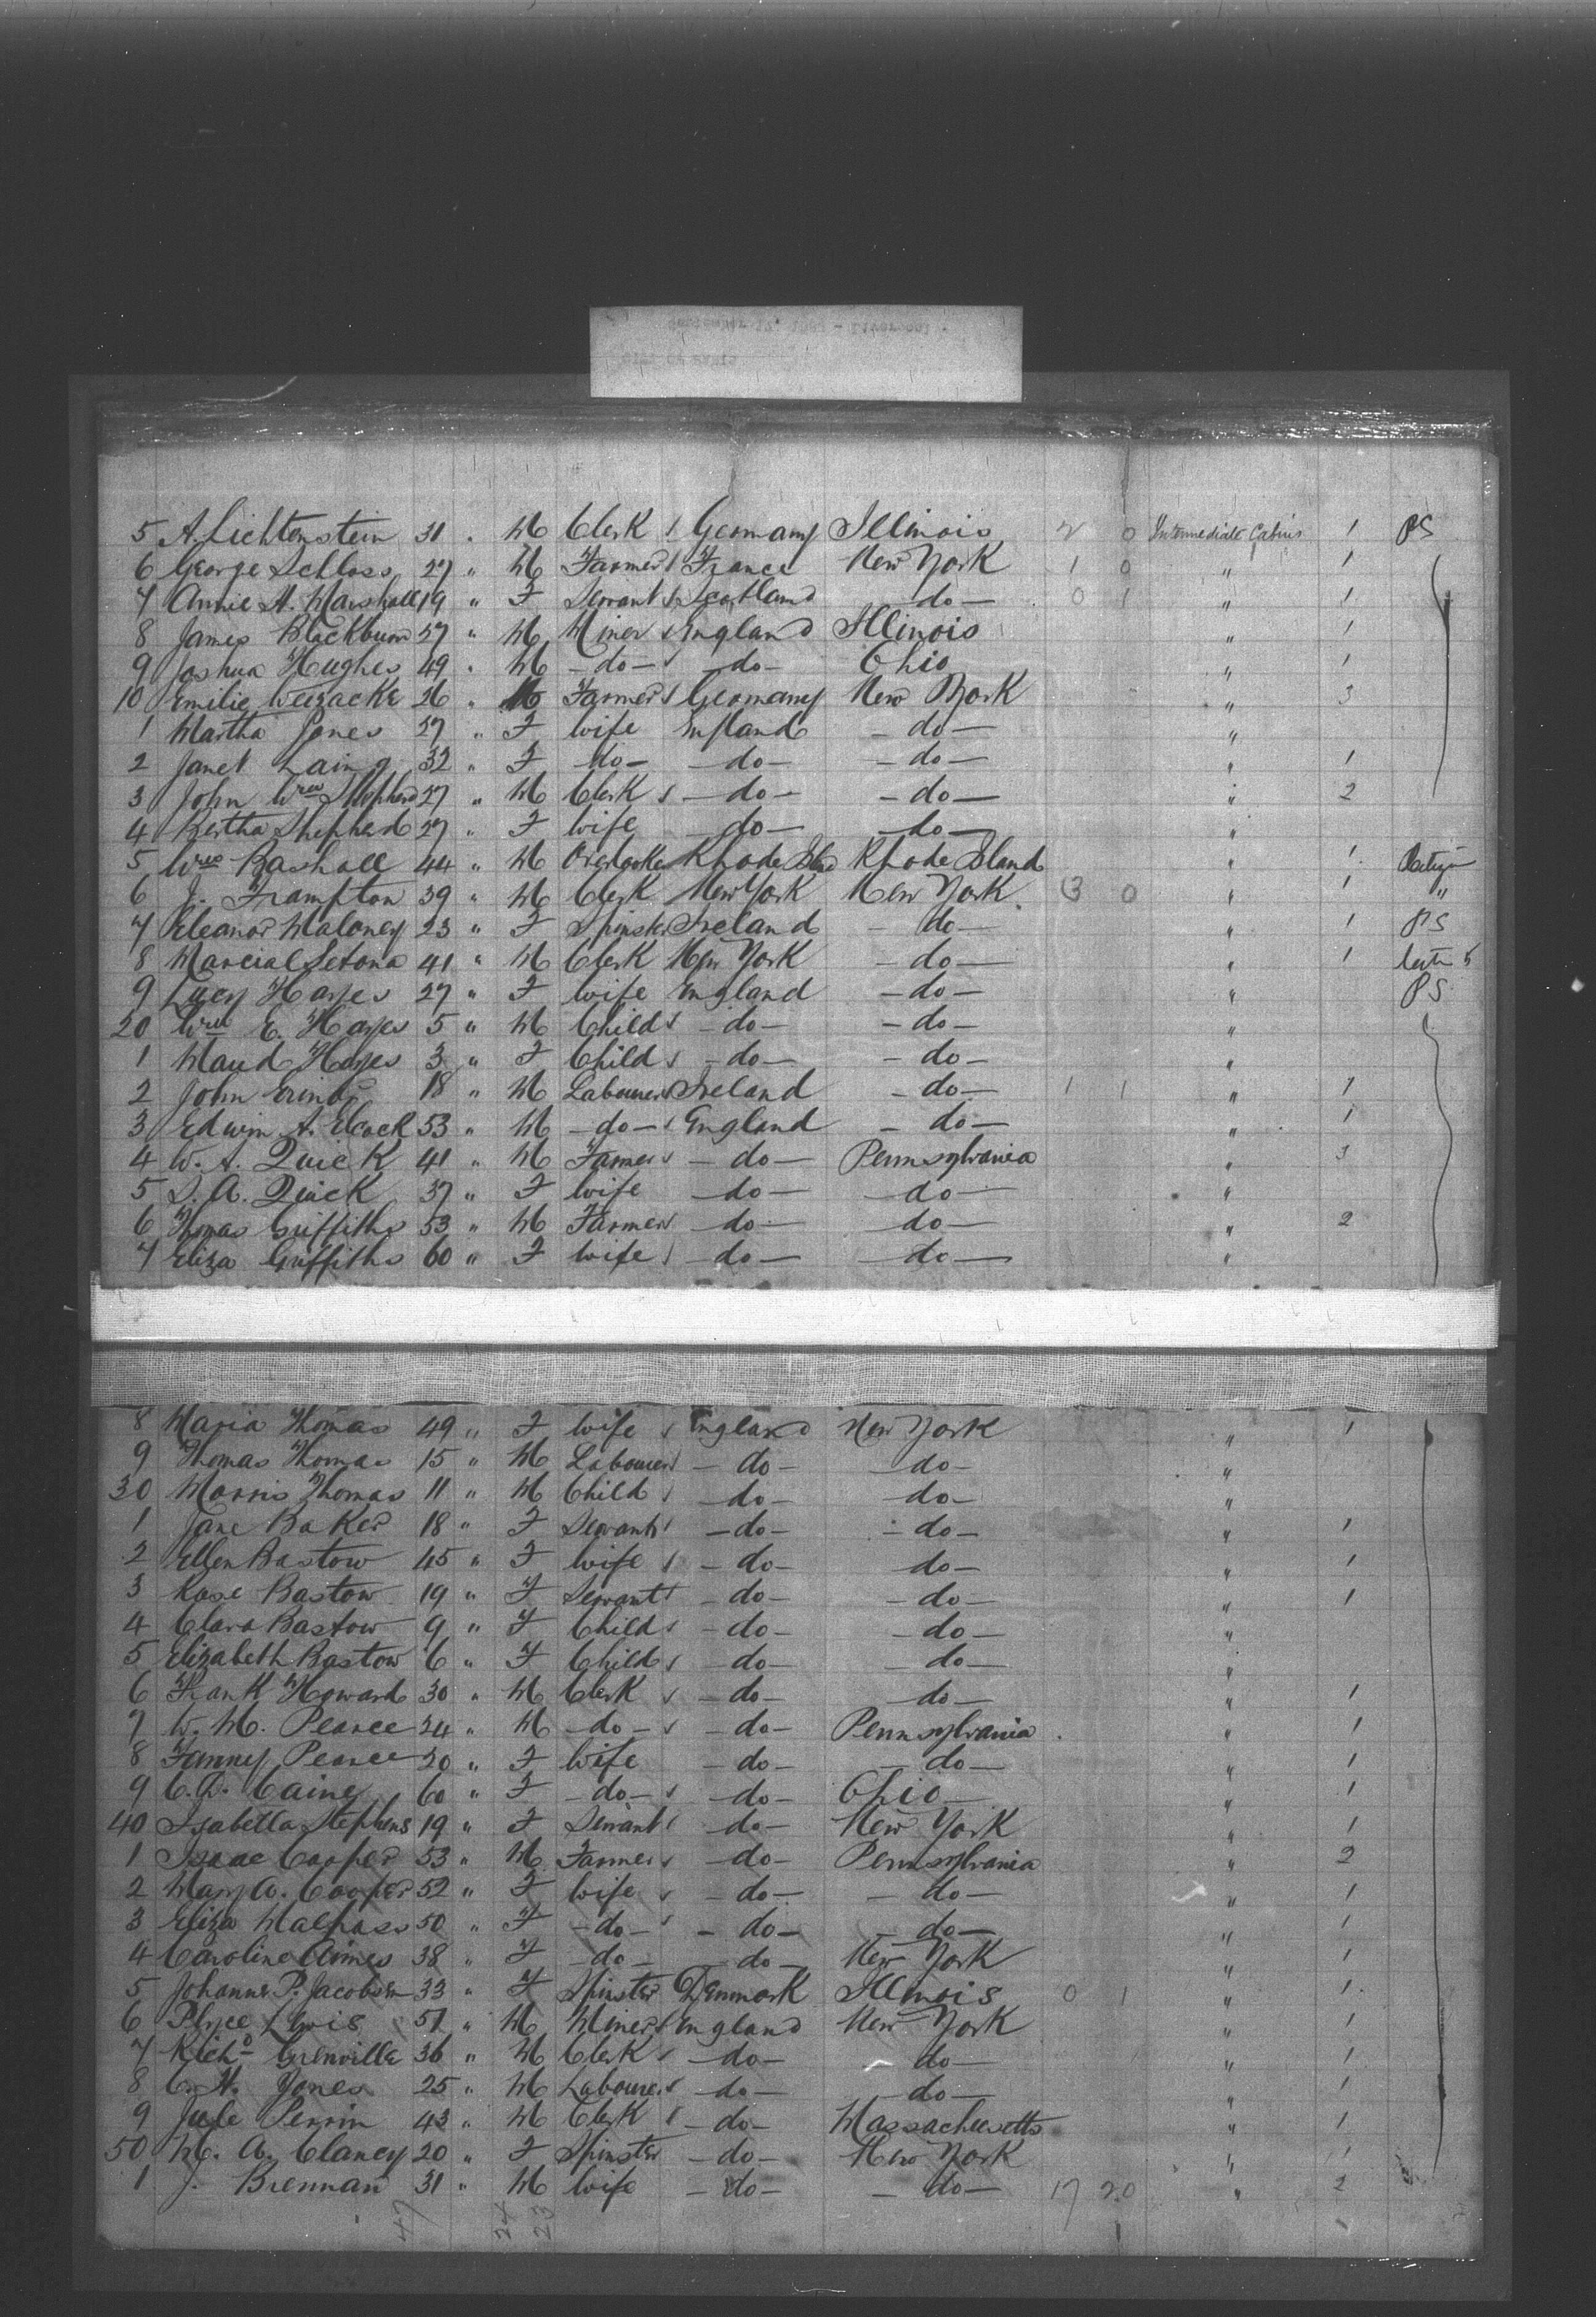 September 17, 1891 - Liverpool
CITY OF PARIS
5 A. Lichtenstein 31 " M Clerk Germany Illinois 2 0 Intermediate Cabins 1 PS
6 George Schloss 27 " M Farmer France New York 1 0 " 1
7 Annie H. Marshall 19 " F Servant Scotland - do - 0 1 " 1
8 James Blackburn 57 " M Miner England Illinois " 1
9 Joshua Hughes 49 " M - do - - do - Ohio " 1
10 Emilie 26 " M Farmer Germany New York " 3
1 Martha Jones 57 " F wife England - do - "
2 Janet Laing 32 " F - do - - do - - do - " 1
3 John Wm Shepherd 27 " M Clerk - do - - do - " 2
4 Bertha Shepherd 27 " F wife - do - - do - "
5 Wm Bashall 44 " M Overlooker Rhode Isld Rhode Island " 1
6 J. Frampton 39 " M Clerk New York New York 3 0 " 1 "
7 Eleanor Maloney 23 " F Spinster Ireland - do - " 1 PS
8 Marcial Setona 41 " M Clerk New York - do - " 1
9 Lucy Hayes 27 " F wife England - do - " PS
20 Wm E. Hayes 5 " M Child - do - - do - "
1 Maud Hayes 3 " F Child - do - - do - "
2 John 18 " M Labourer Ireland - do - 1 1 " 1
3 Edwin A. Elcock 53 " M - do - England - do - " 1
4 W. A. Quick 41 " M Farmer - do - Pennsylvania " 3
5 S. A. Quick 37 " F wife - do - - do - "
6 Thomas Griffiths 53 " M Farmer - do - - do - " 2
7 Eliza Griffiths 60 " F wife - do - - do - "
8 Maria Thomas 49 " F wife England New York " 1
9 Thomas Thomas 15 " M Labourer - do - - do - "
30 Morris Thomas 11 " M Child - do - - do - "
1 Jane Baker 18 " F Servant - do - - do - " 1
2 Ellen Bastow 45 " F wife - do - - do - " 1
3 Rose Bastow 19 " F Servant - do - - do - " 1
4 Clara Bastow 9 " F Child - do - - do - "
5 Elizabeth Bastow 6 " F Child - do - - do - "
6 Frank Howard 30 " M Clerk - do - - do - " 1
7 W. M. Pearce 24 " M - do - - do - Pennsylvania " 1
8 Fanney Pearce 20 " F wife - do - - do - " 1
9 C. D. Caine 60 " F - do - - do - Ohio " 1
40 Isabella Stephens 19 " F Servant - do - New York " 1
1 Isaac Cooper 53 " M Farmer - do - Pennsylvania " 2
2 Mary A. Cooper 52 " F wife - do - - do - " 1
3 Eliza Malpass 50 " F - do - - do - - do - " 1
4 Caroline Aimes 38 " F - do - - do - New York " 1
5 Johanne P. Jacobsen 33 " F Spinster Denmark Illinois 0 1 " 1
6 Lewis 51 " M Miner England New York " 1
7 Richd Grenville 36 " M Clerk - do - - do - " 1
8 C. H. Jones 25 " M Labourer - do - - do - " 1
9 Jule Perrin 43 " M Clerk - do - Massachusetts " 1
50 M. A. Clancy 20 " F Spinster - do - New York " 1
1 J. Brennan 31 " M wife - do - - do - 17 20 " 2
47 24 23